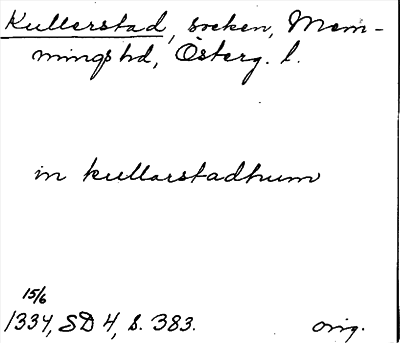 Kullerstad, socken, Mem-
mings hd, Österg. l.
in kullarstadhum
15/6
1334, SD 4, s. 383. orig.